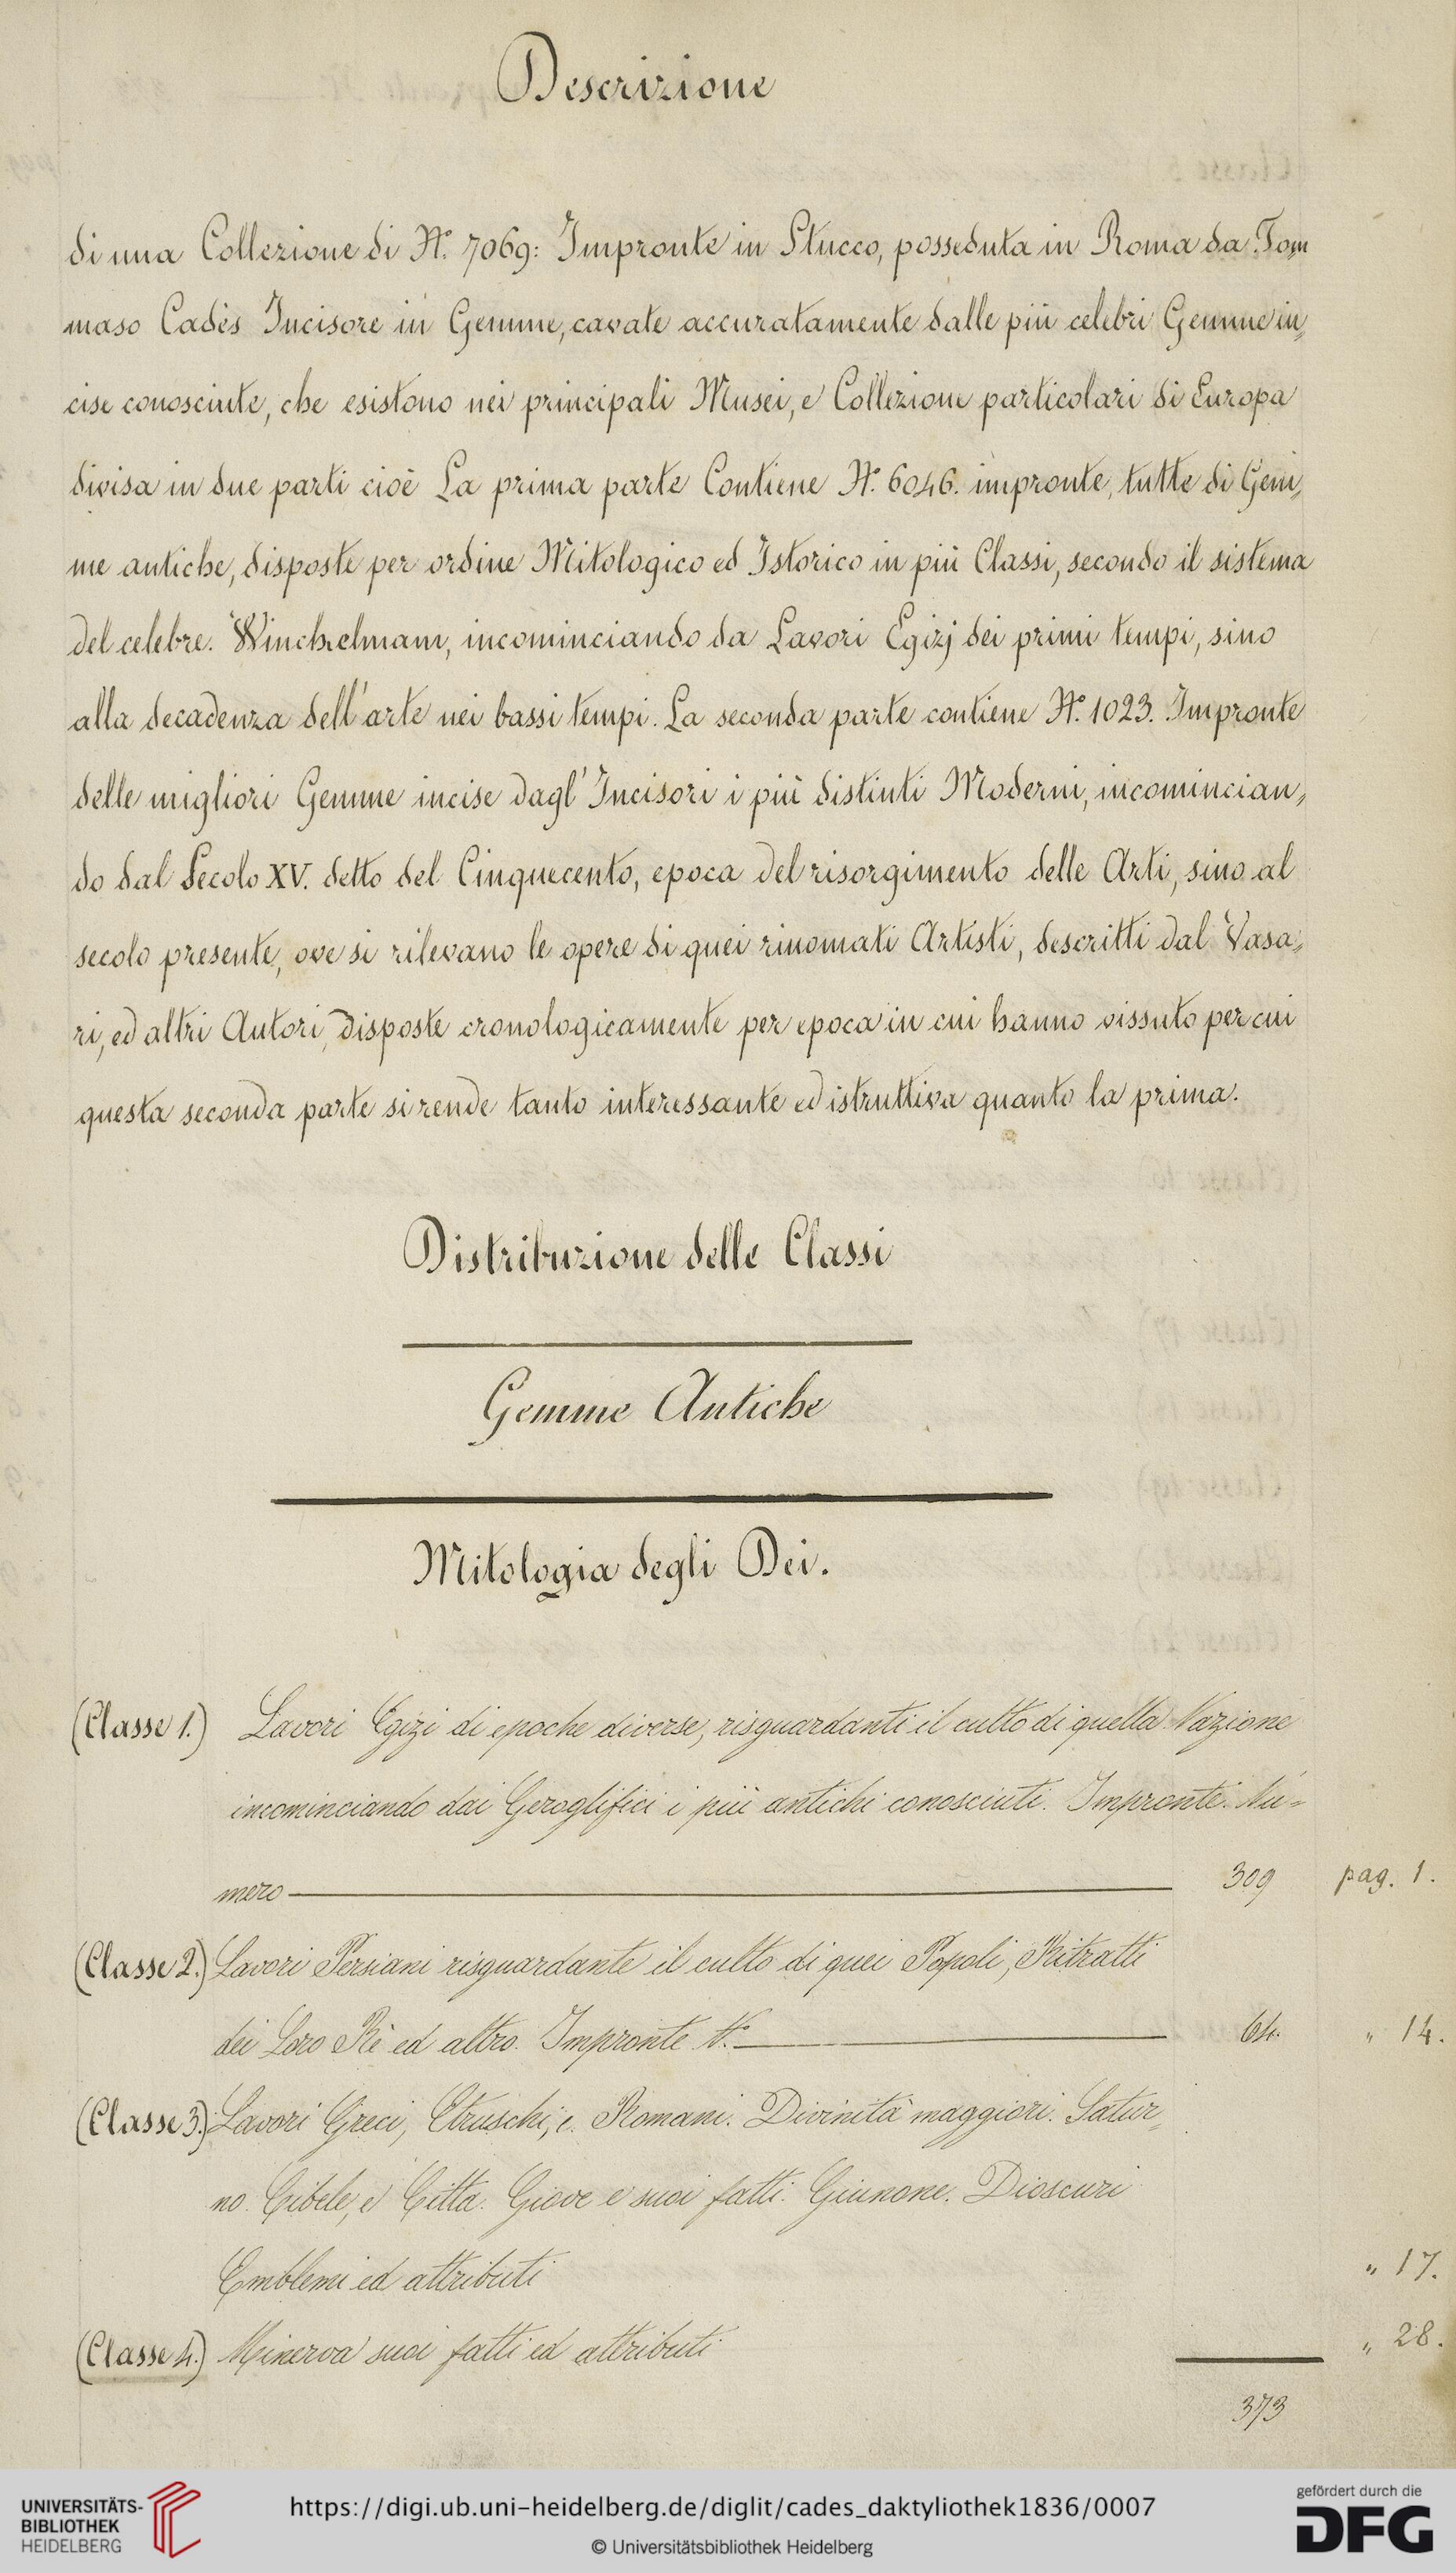 Descrizione
di una Collezione di N.° 7069: Impronte in Stucco, posseduta in Roma da Tom„
maso Cadès Incisore in Gemme, cavate accuratamente dalle più celebri Gemme in„
cise conosciute, che esistono nei principali Musei, e Collezione particolari di Europa
divisa in due parti cioè La prima parte Contiene N.° 6046. impronte, tutte di Gem„
me antiche, disposte per ordine Mitologico ed Istorico in più Classi, secondo il sistema
del celebre. Winchelmam, incominciando da Lavori Egizj dei primi tempi, sino
alla decadenza dell'arte nei bassi tempi. La seconda parte contiene N.° 1023. Impronte
delle migliori Gemme incise dagl'Incisori i più distinti Moderni, incomincian„
do dal Secolo XV. detto del Cinquecento, epoca del risorgimento delle Arti, sino al
secolo presente, ove si rilevano le opere di quei rinomati Artisti, descritti dal Vasa„
ri, ed altri Autori, disposte cronologicamente per epoca in cui hanno vissuto per cui
questa seconda parte si rende tanto interessante ed istruttiva quanto la prima.
Distribuzione delle Classi
Gemme Antiche
Mitologia degli Dei.
(Classe 1.) Lavori Egizi di epoche diverse, risguardanti il culto di quella Nazione
incominciando dai Geroglifici i più antichi conosciuti. Impronte. Nu=
mero 309 pag. 1.
(Classe 2.) Lavori Persiani risguardante il culto di quei Popoli, Ritratti
dei Loro Rè ed altro. Impronte N.° 64. „ 14.
(Classe 3.) Lavori Greci, Etruschi, e. Romani. Divinità maggiori. Satur„
no. Cibele, e Citta. Giove e suoi fatti. Giunone. Dioscuri
Emblemi ed attributi „ 17.
(Classe 4.) Minerva suoi fatti ed attributi „ 28.
373
UNIVERSITÄTS-
BIBLIOTHEK
HEIDELBERG
https://digi.ub.uni-heidelberg.de/diglit/cades_daktyliothek1836/0007
© Universitätsbibliothek Heidelberg
gefördert durch die
DFG